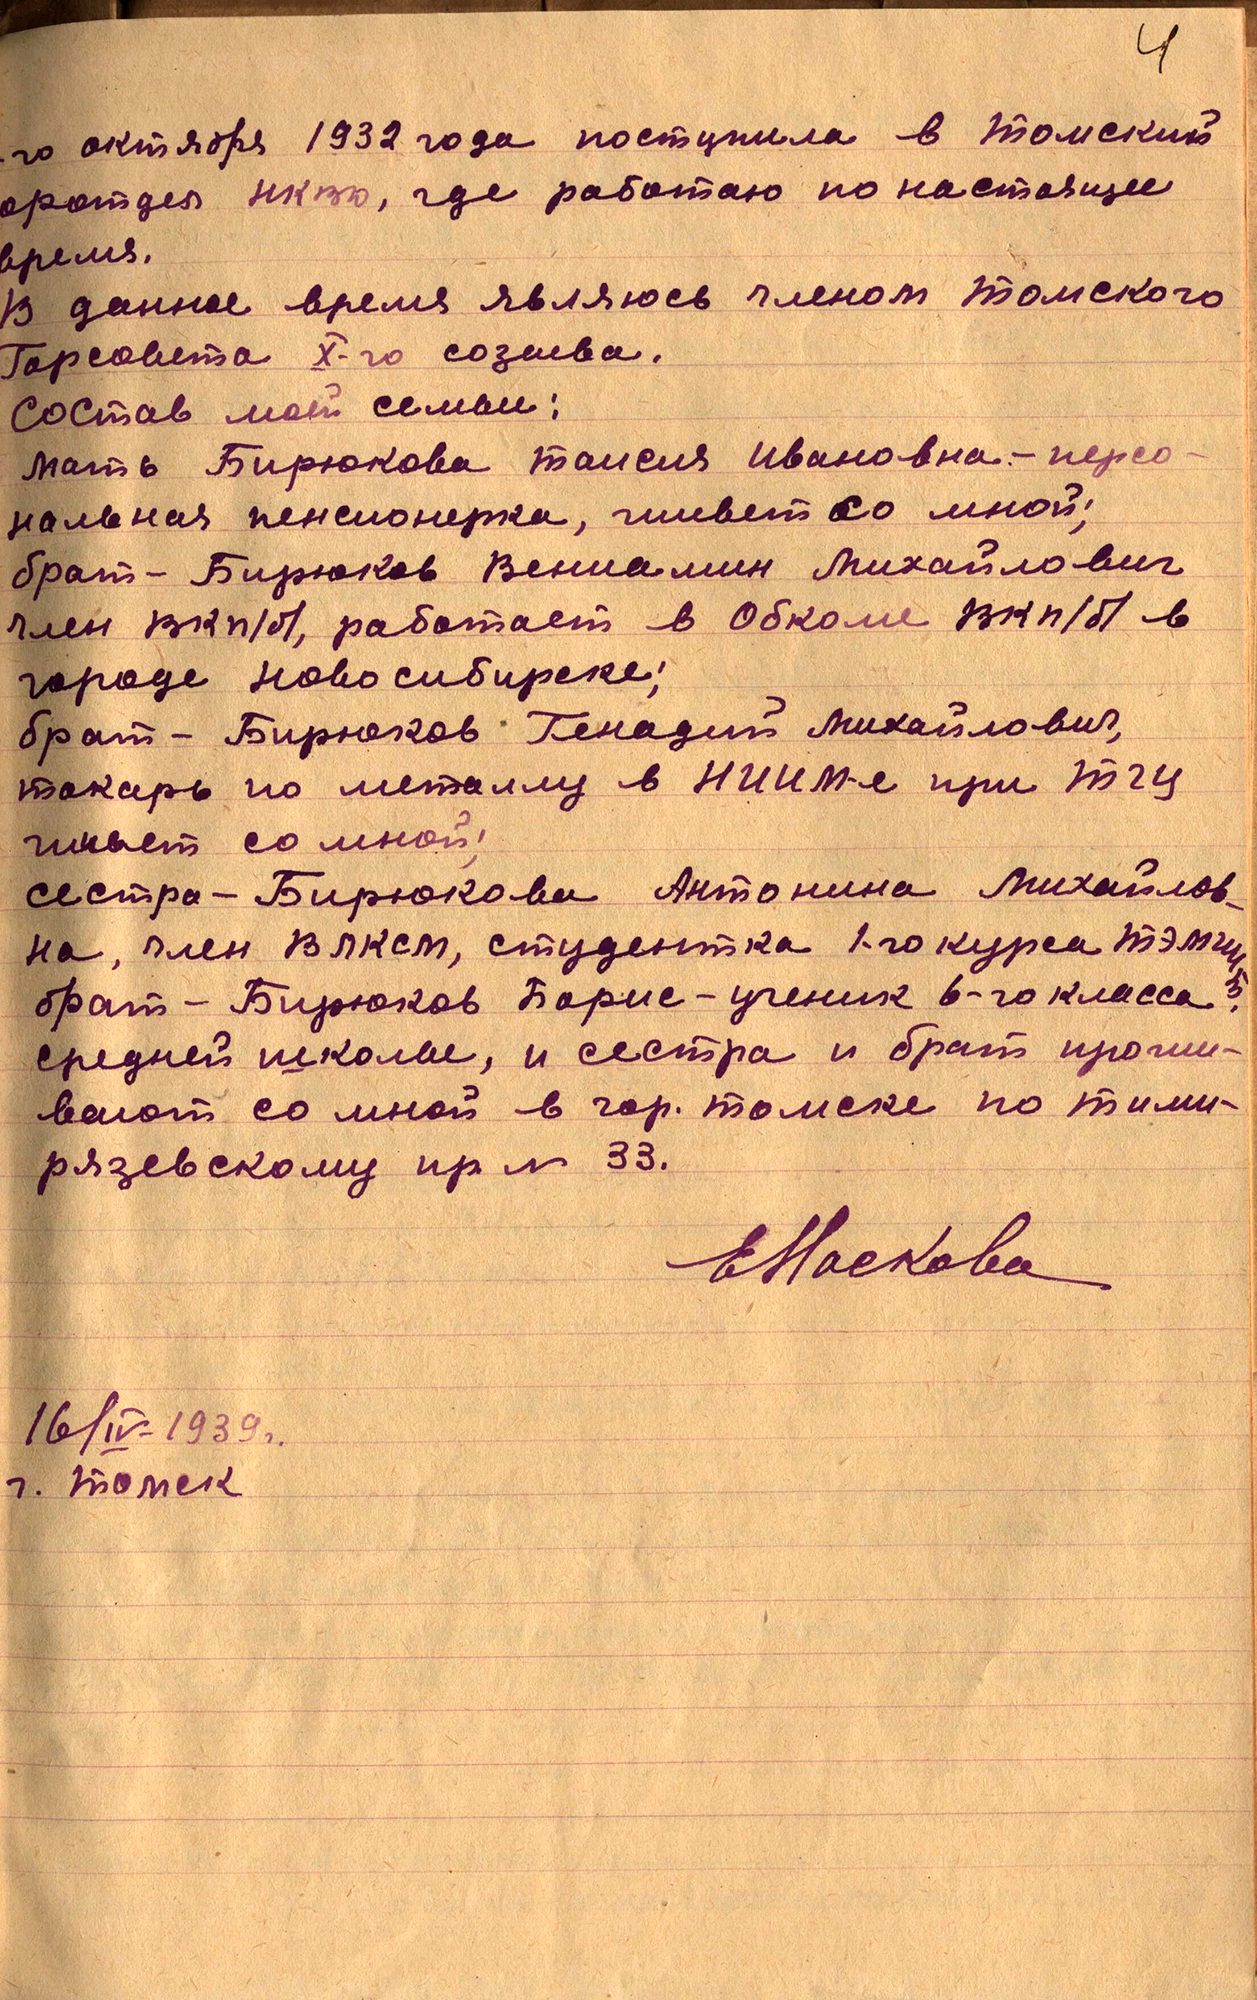 4
-го октября 1932 года поступила в Томский
оротдел НКВД, где работаю по настоящее
время.
В данное время являюсь членом Томского
Горсовета X-го созыва.
Состав моей семьи:
мать Бирюкова Таисия Ивановна - персо-
нальная пенсионерка, живет со мной;
брат - Бирюков Вениамин Михайлович
член ВКП/б/, работает в Обкоме ВКП/б/ в
городе Новосибирске;
брат - Бирюков Генадий Михайлович,
токарь по металлу в НИИМ-е при ТГУ
живет со мной;
сестра - Бирюкова Антонина Михайлов-
на, член ВЛКСМ, студентка 1-го курса ТЭМИИТ.
брат - Бирюков Борис - ученик 6-го класса
средней школы, и сестра и брат прожи-
вают со мной в гор. Томске по Тими-
рязевскому пр № 33.
Е Носкова
16/IV-1939 г.
г. Томск